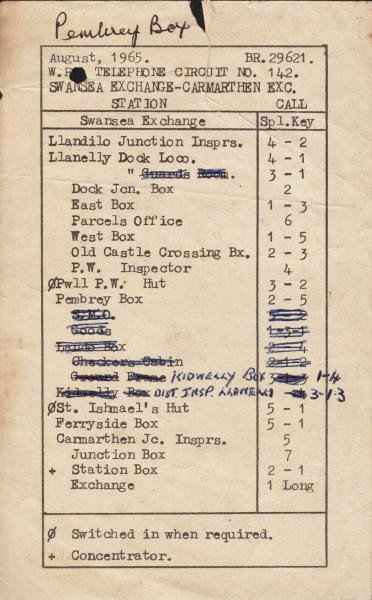 Pembrey Box
August, 1965. BR.29621.
W.R. TELEPHONE CIRCUIT NO. 142.
SWANSEA EXCHANGE-CARMARTHEN EXC.
STATION CALL
Swansea Exchange Spl.Key
Llandilo Junction Insprs. 4 - 2
Llanelly Dock Loco. 4 - 1
" Guards Room. 3 - 1
Dock Jcn. Box 2
East Box 1 - 3
Parcels Office 6
West Box 1 - 5
Old Castle Crossing Bx. 2 - 3
P.W. Inspector 4
ØPwll P.W. Hut 3 - 2
Pembrey Box 2 - 5
S.M.O.
Goods 1-3-1
Lando Box 2 - 4
Checkers Cabin 2-1-2
KIDWELLY BOX 1-4
Kidwelly Box DIST. INSP. LLANELLY 3-1-3
ØSt. Ishmael's Hut 5 - 1
Ferryside Box 5 - 1
Carmarthen Jc. Insprs. 5
Junction Box 7
+ Station Box 2 - 1
Exchange 1 Long
Ø Switched in when required.
+ Concentrator.